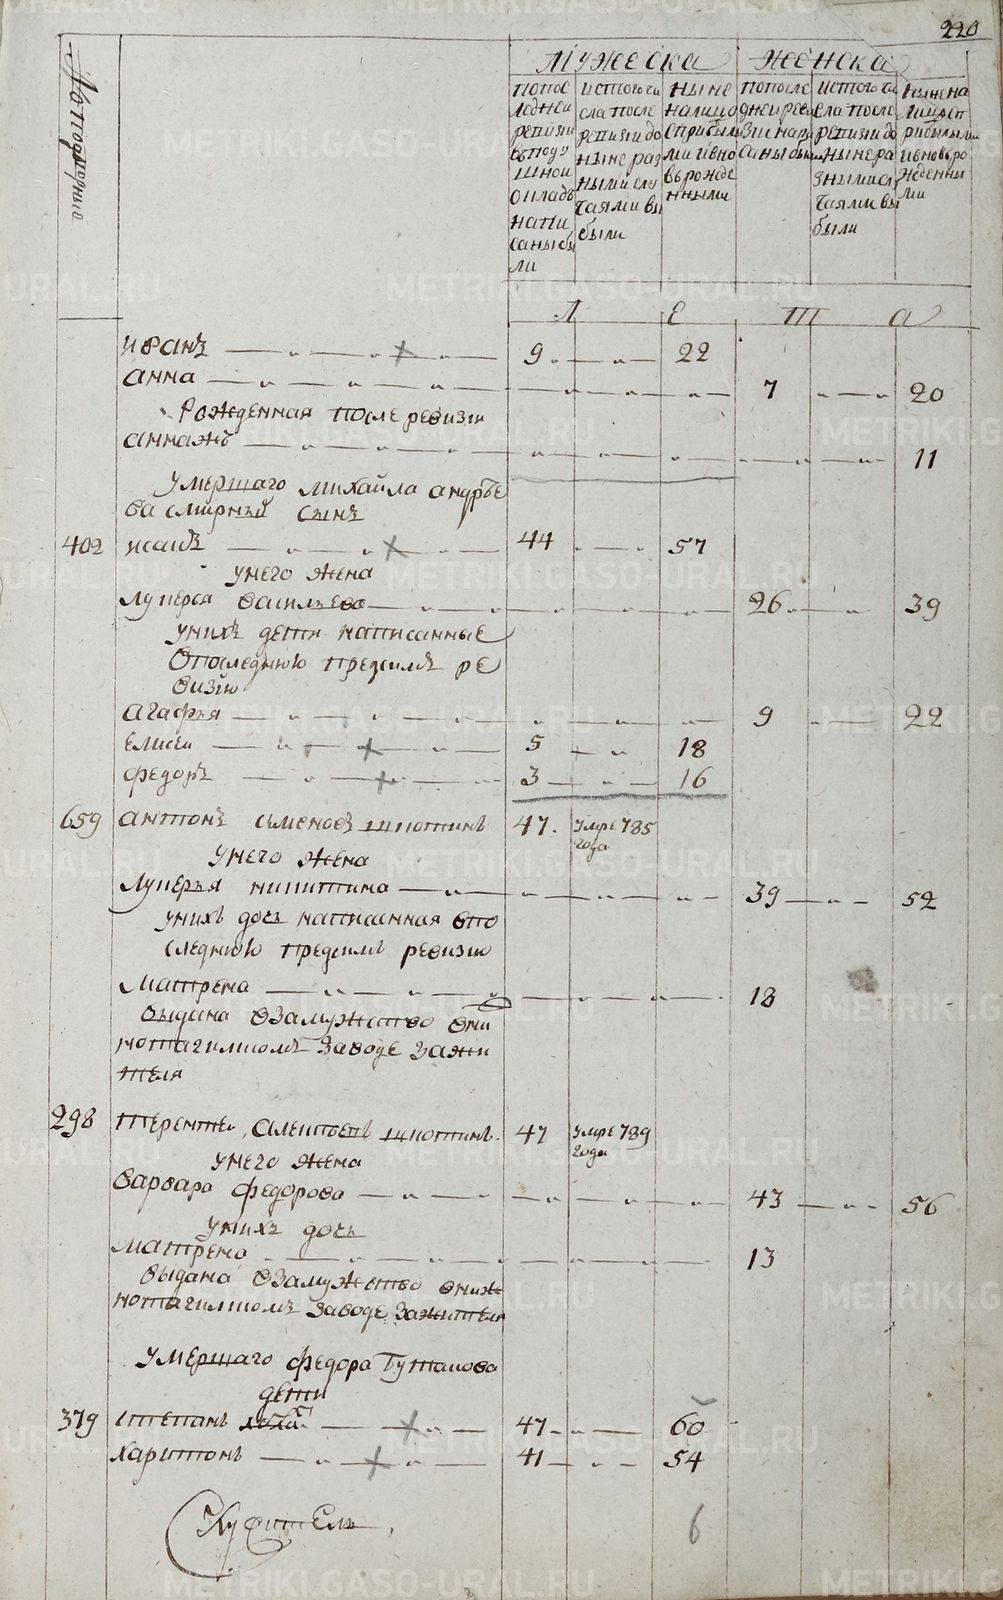 220
№ подворные
МУЖЕСКА ЖЕНСКА
попос
ледней
ревизии
в подушном
окладе
напи
саны бы
ли
ис того чи
сла после
ревизии до
ныне раз
ными слу
чаями вы
были
ныне
налицо
с прибылы
ми и вно
вь рожде
нными
по после
дней реви
зии напи
саны были
ис того чи
сла после
ревизии до
ныне ра
зными сл
учаями вы
были
ныне на
лицо с п
рибылыми
и вновь ро
жденны
ми
Л Е Т А
Иванъ 9 22
анна 7 20
Рожденная после ревизии
аннажъ 11
Умершаго михайла андрѣе
ва сынъ
402 исакъ 44 57
у него жена
Лукерья васильева 26 39
у нихъ дети написанные
в последнюю предсимъ ре
визию
агафья 9 22
елисеи 5 18
федоръ 3 16
659 антонъ семеновъ 47. умре 785
года
у него жена
Лукерья никитина 39 52
у нихъ дочь написанная в по
следнюю предсимъ ревизию
матрена 18
выдана в замужство в ни
нотагилскомъ заводе за жи
теля
298 терентеи алексеевъ 47 умре 789
года
у него жена
варвара федорова 43 56
у нихъ дочь
матрена 13
выдана в замужство в ниж
нотагилскомъ заводе за жителя
умершаго федора
дети
379 степанъ 47 60
харитонъ 41 54
6
METRIKI.GASO-URAL.RU